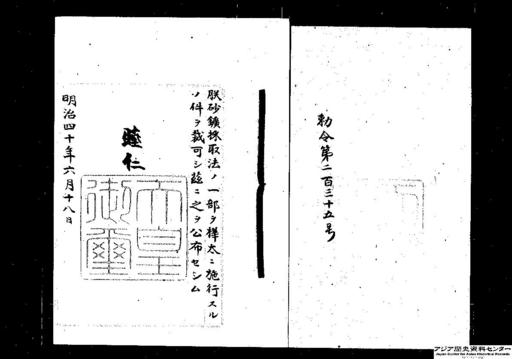 勅令第二百三十五号
朕砂鑛採取法ノ一部ヲ樺太ニ施行スル
ノ件ヲ裁可シ茲ニ之ヲ公布セシム
睦仁
天皇
御璽
明治四十年六月十八日
アジア歴史資料センター
Japan Center for Asian Historical Records